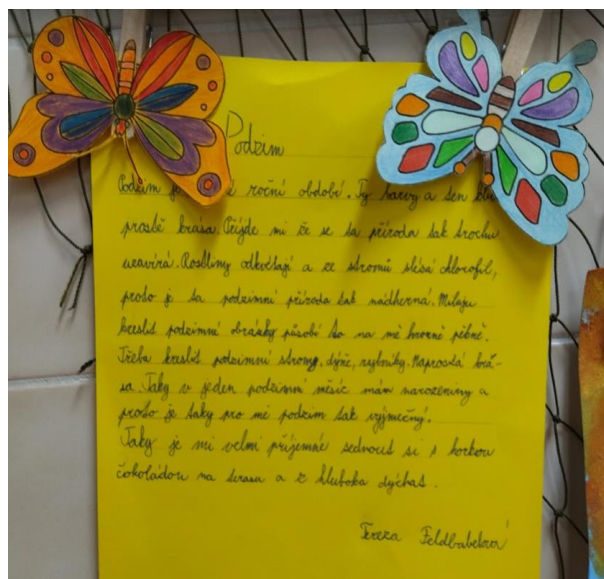 Podzim
Podzim je roční období. Ty barvy a ten
prostě krása. Příjde mi že se ta příroda tak trochu
uzavírá. Rostliny odkvétají a ze stromů slétá chlorofil,
proto je ta podzimní příroda tak nádherná. Miluju
kreslit podzimní obrázky působí to na mě hrozně pěkně.
Třeba kreslit podzimní stromy, dýně, rybníky. Naprostá krá-
sa. Taky v jeden podzimní měsíc mám narozeniny a
proto je taky pro mě podzim tak vyjímečný.
Taky je mi velmi příjemné sednout si s horkou
čokoládou na terasu a z hluboka dýchat.
Tereza Feldbabelová